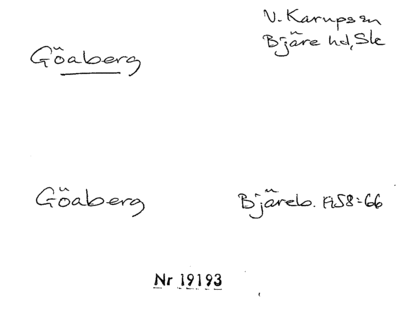 V. Karups sn
Bjäre hd, Sk
Göaberg
Göaberg
Bjäreb. A58:66
Nr 19193